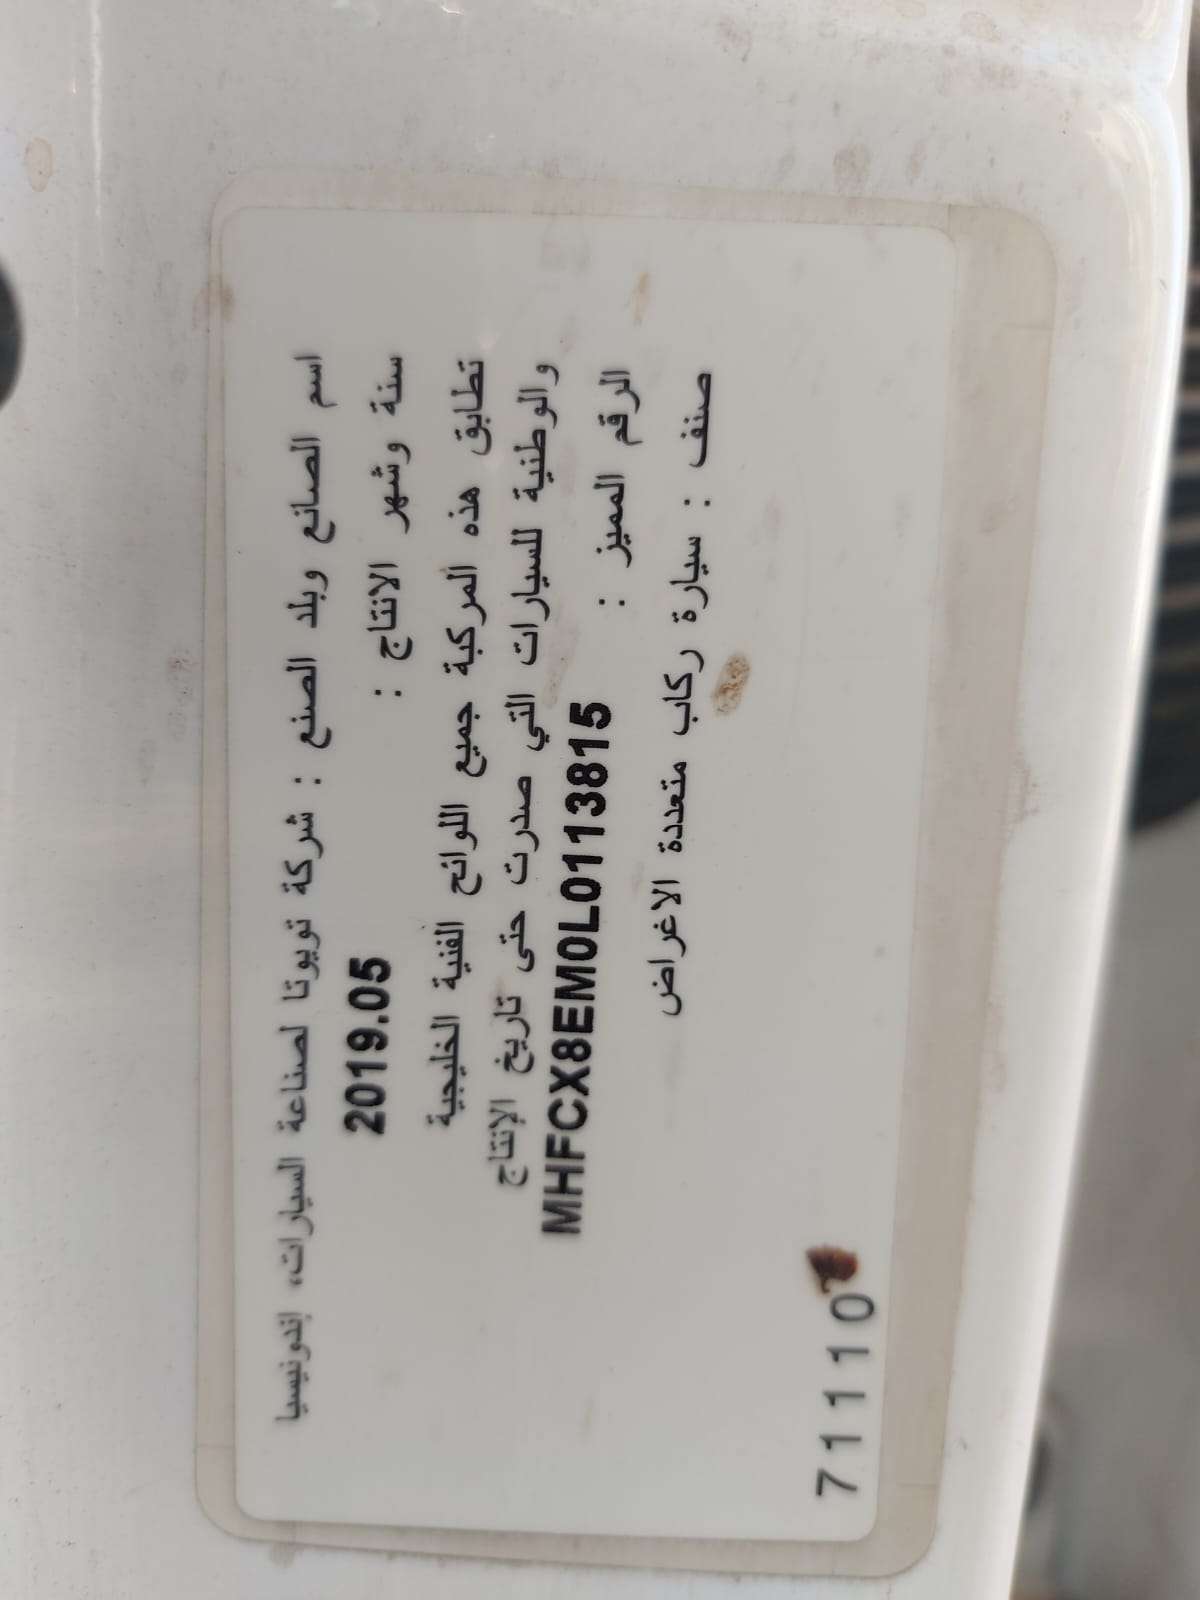 اسم الصانع وبلد الصنع : شركة تويوتا لصناعة السيارات، إندونيسيا
سنة وشهر الانتاج : 2019.05
تطابق هذه المركبة جميع اللوائح الفنية الخليجية
والوطنية للسيارات التي صدرت حتى تاريخ الإنتاج
الرقم المميز : MHFCX8EM0L0113815
صنف : سيارة ركاب متعددة الاغراض
71110